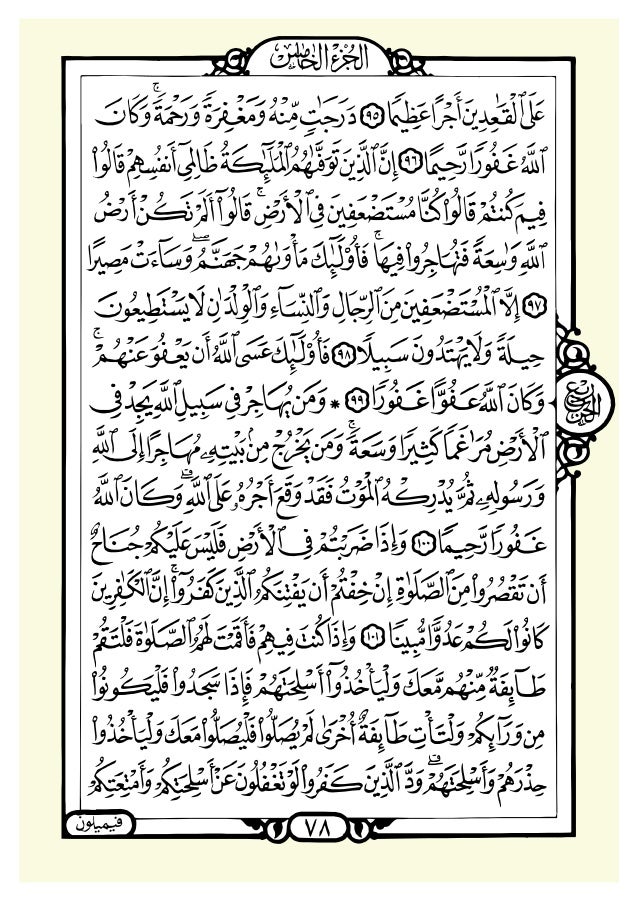 الجزء الخامس
عَلَى ٱلْقَٰعِدِينَ أَجْرًا عَظِيمًا ٩٥ دَرَجَٰتٍ مِّنْهُ وَمَغْفِرَةً وَرَحْمَةً ۚ وَكَانَ
ٱللَّهُ غَفُورًا رَّحِيمًا ٩٦ إِنَّ ٱلَّذِينَ تَوَفَّىٰهُمُ ٱلْمَلَٰٓئِكَةُ ظَالِمِىٓ أَنفُسِهِمْ قَالُوا۟
فِيمَ كُنتُمْ ۖ قَالُوا۟ كُنَّا مُسْتَضْعَفِينَ فِى ٱلْأَرْضِ ۚ قَالُوٓا۟ أَلَمْ تَكُنْ أَرْضُ
ٱللَّهِ وَٰسِعَةً فَتُهَاجِرُوا۟ فِيهَا ۚ فَأُو۟لَٰٓئِكَ مَأْوَىٰهُمْ جَهَنَّمُ ۖ وَسَآءَتْ مَصِيرًا
٩٧ إِلَّا ٱلْمُسْتَضْعَفِينَ مِنَ ٱلرِّجَالِ وَٱلنِّسَآءِ وَٱلْوِلْدَٰنِ لَا يَسْتَطِيعُونَ
حِيلَةً وَلَا يَهْتَدُونَ سَبِيلًا ٩٨ فَأُو۟لَٰٓئِكَ عَسَى ٱللَّهُ أَن يَعْفُوَ عَنْهُمْ ۚ
وَكَانَ ٱللَّهُ عَفُوًّا غَفُورًا ٩٩ * وَمَن يُهَاجِرْ فِى سَبِيلِ ٱللَّهِ يَجِدْ فِى
ٱلْأَرْضِ مُرَٰغَمًا كَثِيرًا وَسَعَةً ۚ وَمَن يَخْرُجْ مِنۢ بَيْتِهِۦ مُهَاجِرًا إِلَى ٱللَّهِ
وَرَسُولِهِۦ ثُمَّ يُدْرِكْهُ ٱلْمَوْتُ فَقَدْ وَقَعَ أَجْرُهُۥ عَلَى ٱللَّهِ ۗ وَكَانَ ٱللَّهُ
غَفُورًا رَّحِيمًا ١٠٠ وَإِذَا ضَرَبْتُمْ فِى ٱلْأَرْضِ فَلَيْسَ عَلَيْكُمْ جُنَاحٌ
أَن تَقْصُرُوا۟ مِنَ ٱلصَّلَوٰةِ إِنْ خِفْتُمْ أَن يَفْتِنَكُمُ ٱلَّذِينَ كَفَرُوٓا۟ ۚ إِنَّ ٱلْكَٰفِرِينَ
كَانُوا۟ لَكُمْ عَدُوًّا مُّبِينًا ١٠١ وَإِذَا كُنتَ فِيهِمْ فَأَقَمْتَ لَهُمُ ٱلصَّلَوٰةَ فَلْتَقُمْ
طَآئِفَةٌ مِّنْهُم مَّعَكَ وَلْيَأْخُذُوٓا۟ أَسْلِحَتَهُمْ فَإِذَا سَجَدُوا۟ فَلْيَكُونُوا۟
مِن وَرَآئِكُمْ وَلْتَأْتِ طَآئِفَةٌ أُخْرَىٰ لَمْ يُصَلُّوا۟ فَلْيُصَلُّوا۟ مَعَكَ وَلْيَأْخُذُوا۟
حِذْرَهُمْ وَأَسْلِحَتَهُمْ ۗ وَدَّ ٱلَّذِينَ كَفَرُوا۟ لَوْ تَغْفُلُونَ عَنْ أَسْلِحَتِكُمْ وَأَمْتِعَتِكُمْ
ربع الحزب
فيميلون
٧٨